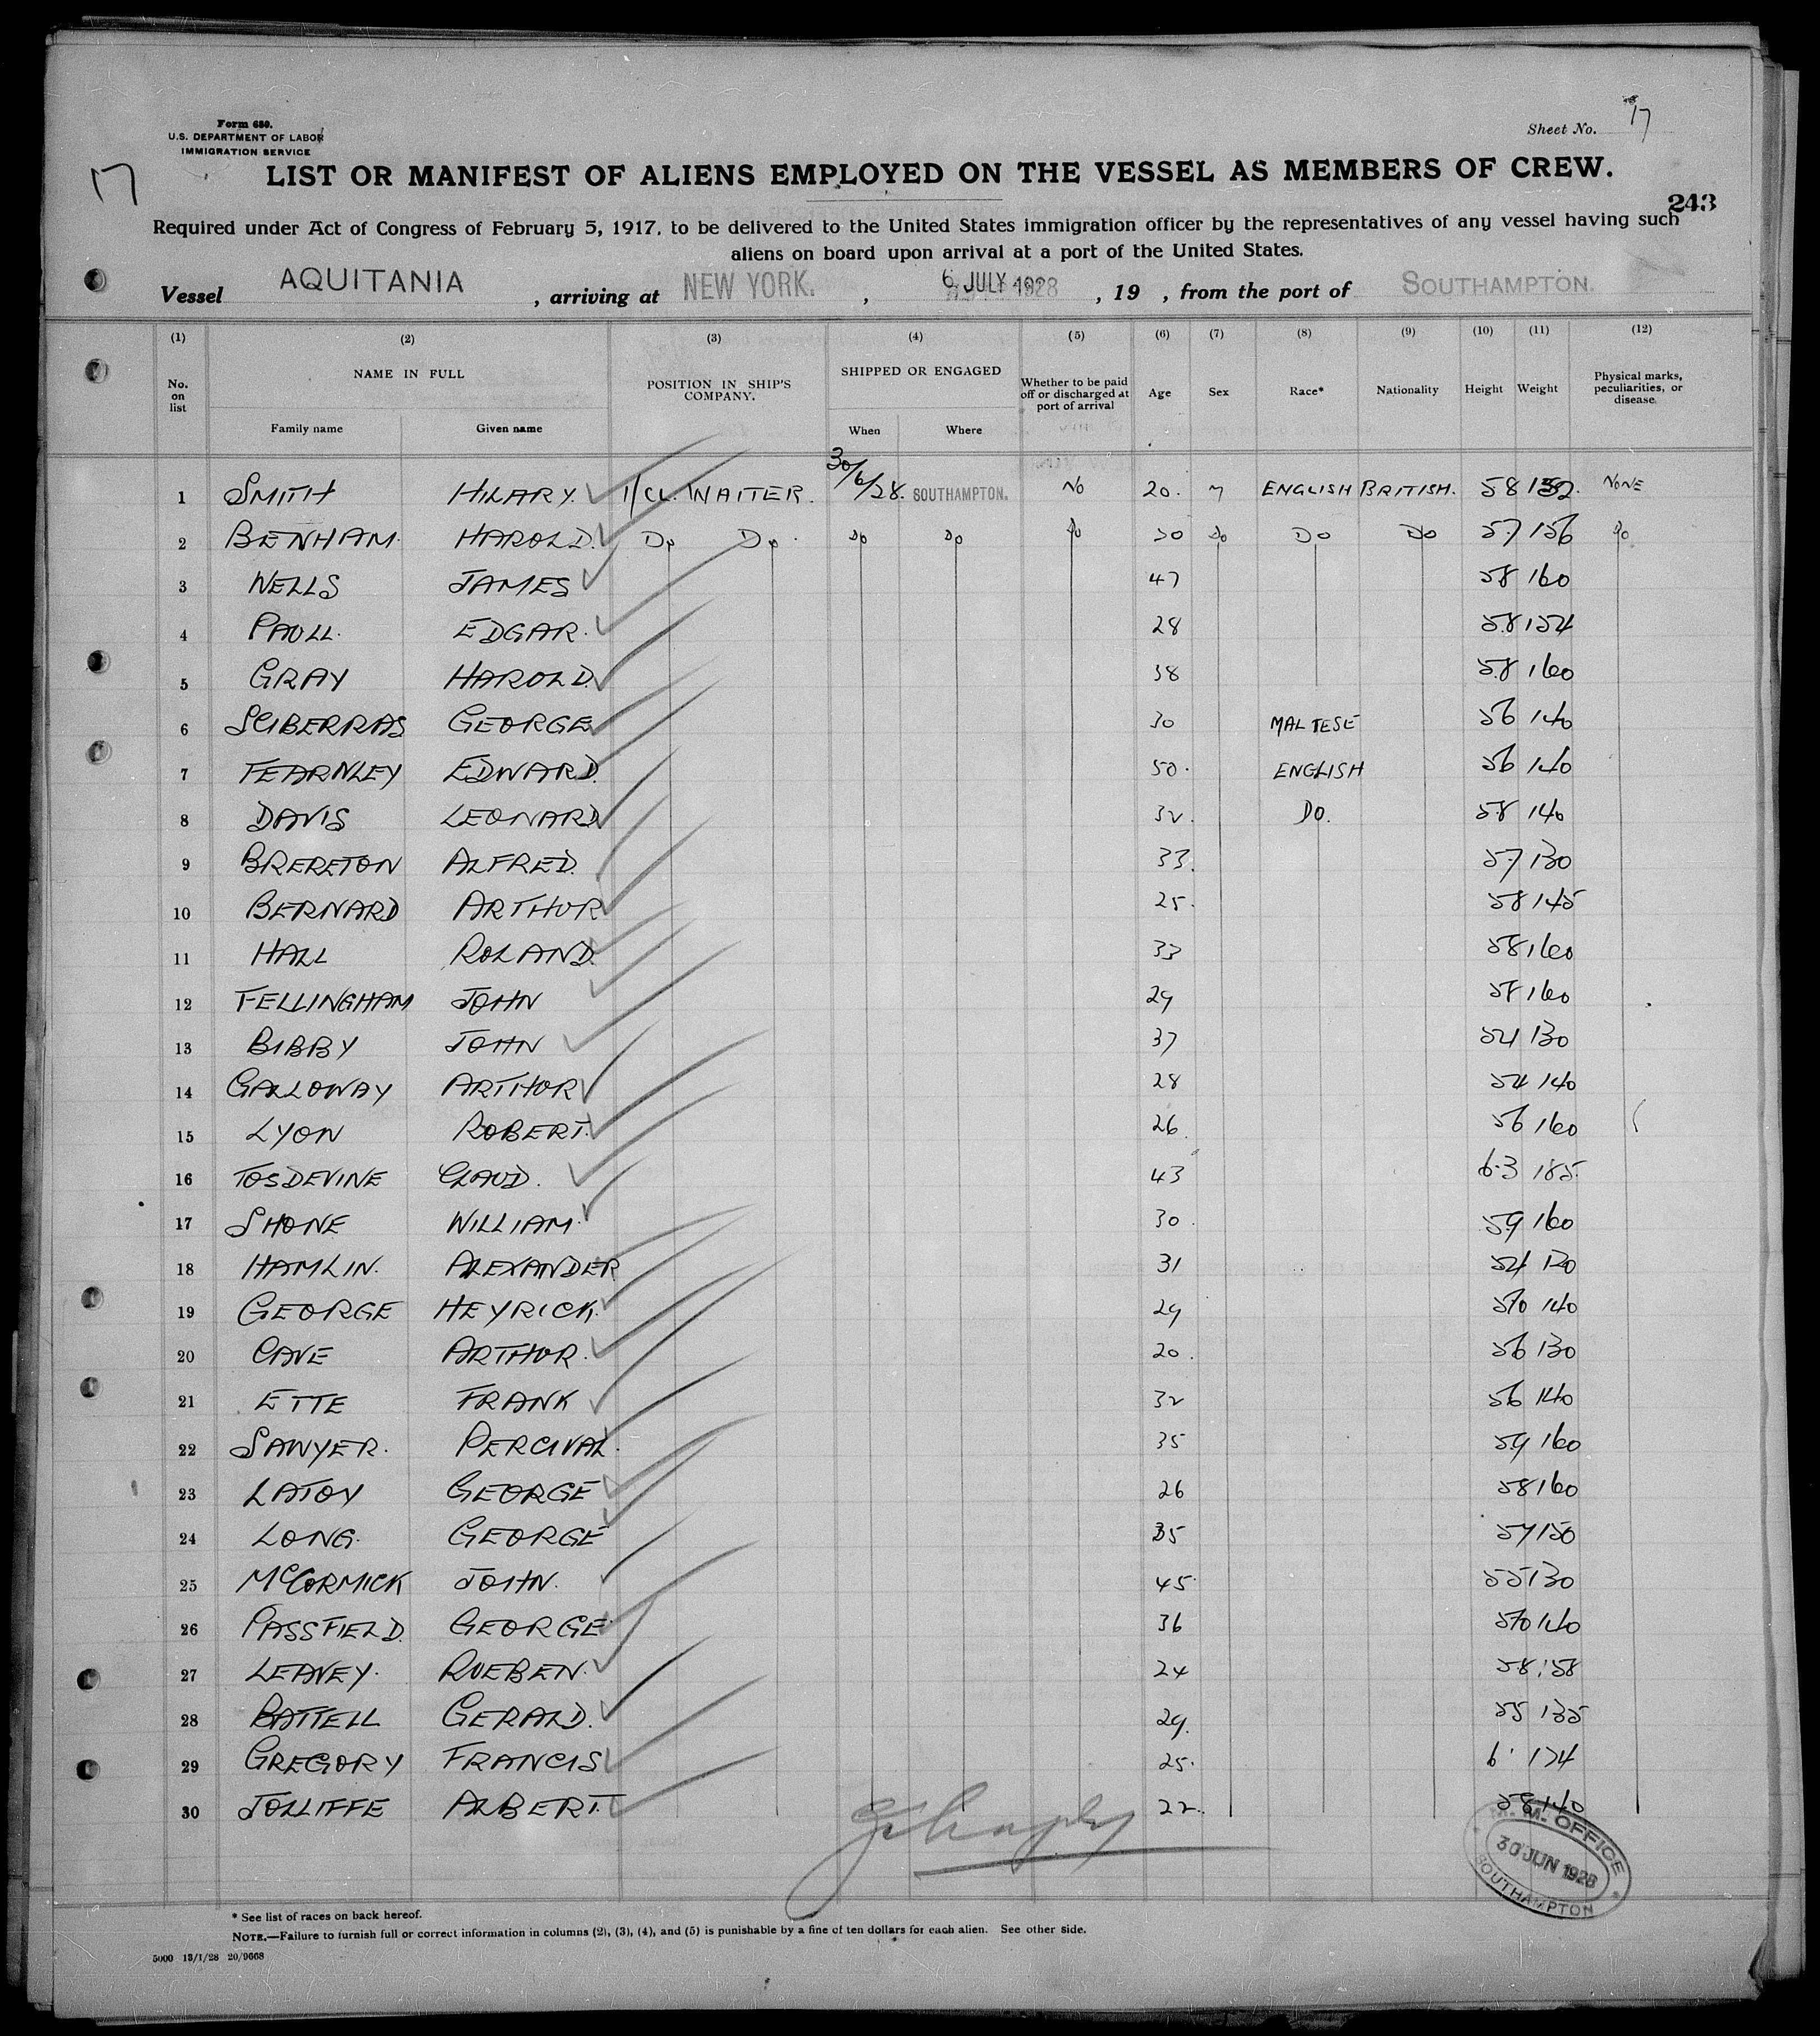 Form 680.
U.S. DEPARTMENT OF LABOR
IMMIGRATION SERVICE
Sheet No. 17
17
LIST OR MANIFEST OF ALIENS EMPLOYED ON THE VESSEL AS MEMBERS OF CREW.
243
Required under Act of Congress of February 5, 1917, to be delivered to the United States immigration officer by the representatives of any vessel having such
aliens on board upon arrival at a port of the United States.
Vessel AQUITANIA, arriving at NEW YORK., 6 JULY 1928, 19 , from the port of SOUTHAMPTON.
(1) (2) (3) (4) (5) (6) (7) (8) (9) (10) (11) (12)
No. on list NAME IN FULL POSITION IN SHIP'S COMPANY. SHIPPED OR ENGAGED Whether to be paid off or discharged at port of arrival Age Sex Race* Nationality Height Weight Physical marks, peculiarities, or disease.
Family name Given name When Where
1 SMITH HILARY. 1/CL. WAITER. 30/6/28. SOUTHAMPTON. NO 20. M ENGLISH BRITISH. 58 NONE
2 BENHAM. HAROLD. DO DO. DO DO DO 30 DO DO DO 57 156 DO
3 WELLS JAMES 47 58 160
4 PAULL. EDGAR. 28 58 154
5 GRAY HAROLD. 38 58 160
6 SCIBERRAS GEORGE 30 MALTESE 56 140
7 FEARNLEY EDWARD. 50. ENGLISH 56 140
8 DAVIS LEONARD 32. DO. 58 140
9 BRERETON ALFRED. 33. 57 130
10 BERNARD ARTHUR 25. 58 145
11 HALL ROLAND. 33 58 160
12 FELLINGHAM JOHN 29 58 160
13 BIBBY JOHN 37 54 130
14 GALLOWAY ARTHUR 28 54 140
15 LYON ROBERT. 26. 56 160
16 TOSDEVINE CLAUD. 43 6.3 185.
17 SHONE WILLIAM. 30. 59 160
18 HAMLIN. ALEXANDER 31 54 120
19 GEORGE HEYRICK. 29 570 140
20 CAVE ARTHUR. 20. 56 130
21 ETTE FRANK 32 56 140
22 SAWYER. PERCIVAL. 35 59 160
23 LATOY GEORGE 26 58 160
24 LONG. GEORGE 35 57 150
25 McCORMICK JOHN. 45. 55 130
26 PASSFIELD. GEORGE 36 570 140
27 LEAVEY. RUEBEN. 24 58 158
28 BATTELL GERALD. 29. 55 135
29 GREGORY FRANCIS 25. 6' 174
30 JOLLIFFE ALBERT. 22.. 58 140
M. M. OFFICE
30 JUN 1928
SOUTHAMPTON
* See list of races on back hereof.
NOTE.—Failure to furnish full or correct information in columns (2), (3), (4), and (5) is punishable by a fine of ten dollars for each alien. See other side.
5000 13/1/28 20/9668